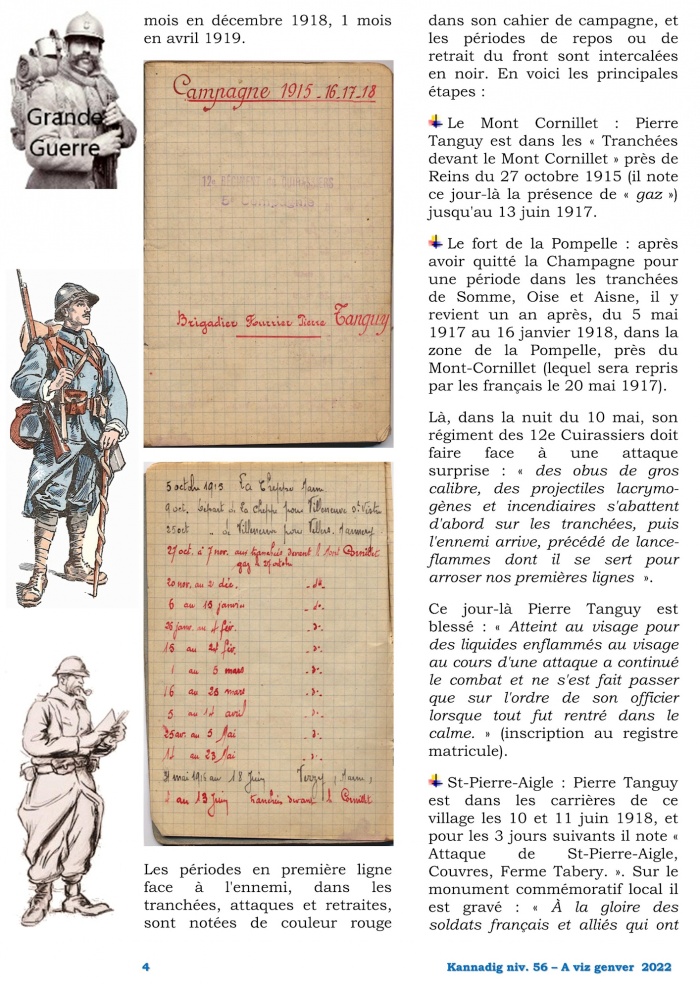 Grande
Guerre
mois en décembre 1918, 1 mois
en avril 1919.
Campagne 1915_16_17_18
12e RÉGIMENT DE CUIRASSIERS
Brigadier Fourrier Pierre Tanguy
5 octobre 1915 La Cheppe
9 oct. Départ de la Cheppe pour Villeneuve
25 oct de Villeneuve pour
27 oct. à 7 nov. aux tranchées devant le Mont Cornillet
gaz le 27 octobre
20 nov. au 2 déc.
6 au 15 janvier
26 janv. au 4 fév.
15 au 24 fév.
1 au 5 mars
16 au 25 mars
5 au 14 avril
25 av. au 5 Mai
14 au 23 Mai
31 mai 1916 au 18 Juin Verzy
au 13 Juin tranchées devant le Cornillet
Les périodes en première ligne
face à l'ennemi, dans les
tranchées, attaques et retraites,
sont notées de couleur rouge
dans son cahier de campagne, et
les périodes de repos ou de
retrait du front sont intercalées
en noir. En voici les principales
étapes :
Le Mont Cornillet : Pierre
Tanguy est dans les « Tranchées
devant le Mont Cornillet » près de
Reins du 27 octobre 1915 (il note
ce jour-là la présence de « gaz »)
jusqu'au 13 juin 1917.
Le fort de la Pompelle : après
avoir quitté la Champagne pour
une période dans les tranchées
de Somme, Oise et Aisne, il y
revient un an après, du 5 mai
1917 au 16 janvier 1918, dans la
zone de la Pompelle, près du
Mont-Cornillet (lequel sera repris
par les français le 20 mai 1917).
Là, dans la nuit du 10 mai, son
régiment des 12e Cuirassiers doit
faire face à une attaque
surprise : « des obus de gros
calibre, des projectiles lacrymo-
gènes et incendiaires s'abattent
d'abord sur les tranchées, puis
l'ennemi arrive, précédé de lance-
flammes dont il se sert pour
arroser nos premières lignes ».
Ce jour-là Pierre Tanguy est
blessé : « Atteint au visage pour
des liquides enflammés au visage
au cours d'une attaque a continué
le combat et ne s'est fait passer
que sur l'ordre de son officier
lorsque tout fut rentré dans le
calme. » (inscription au registre
matricule).
St-Pierre-Aigle : Pierre Tanguy
est dans les carrières de ce
village les 10 et 11 juin 1918, et
pour les 3 jours suivants il note «
Attaque de St-Pierre-Aigle,
Couvres, Ferme Tabery. ». Sur le
monument commémoratif local il
est gravé : « À la gloire des
soldats français et alliés qui ont
4
Kannadig niv. 56 – A viz genver 2022